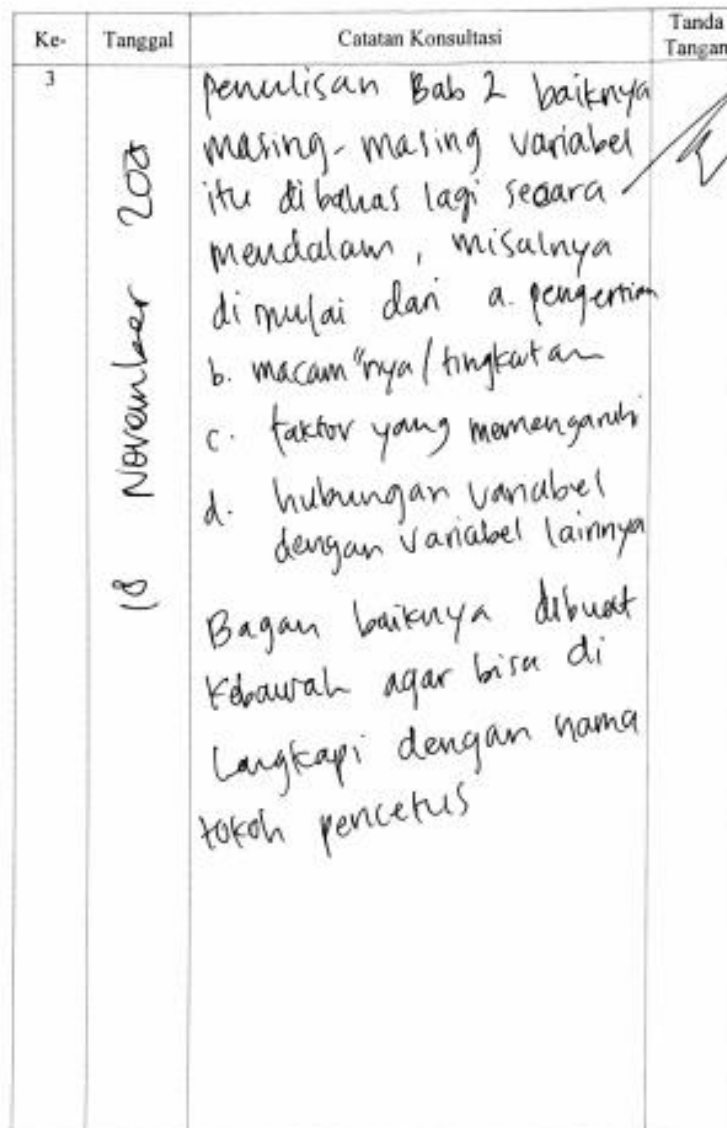 Ke- Tanggal Catatan Konsultasi Tanda Tangan
3
18 November
penulisan Bab 2 baiknya
masing-masing variabel
itu dibahas lagi secara
mendalam, misalnya
dimulai dari a. pengertian
b. macam"nya/tingkatan
c. faktor yang memengaruhi
d. hubungan variabel
dengan variabel lainnya
Bagan baiknya dibuat
kebawah agar bisa di
langkapi dengan nama
tokoh pencetus